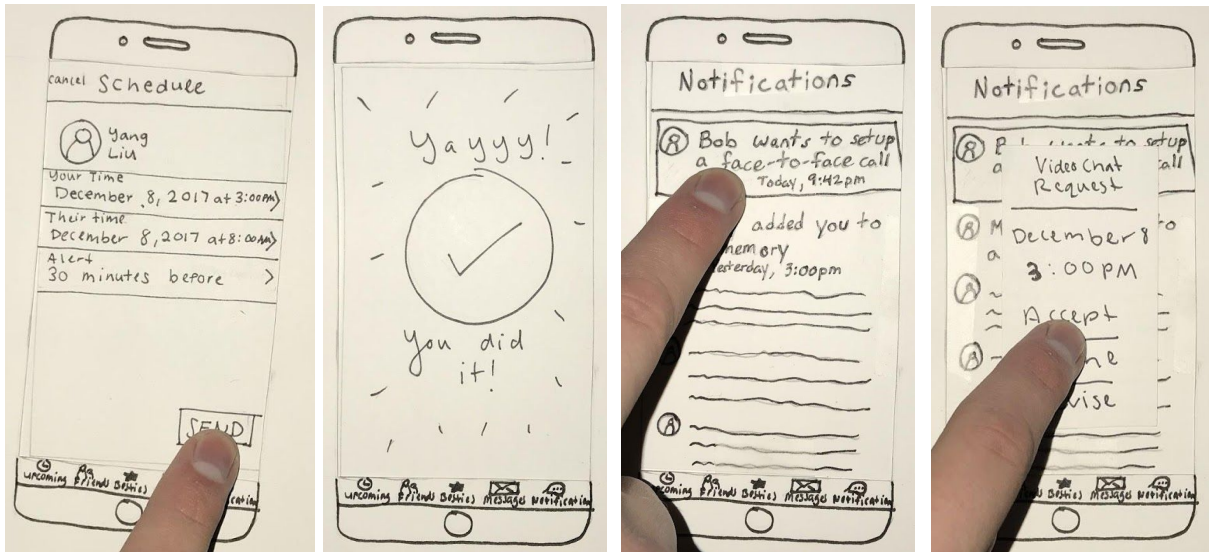 cancel Schedule
Yang
Liu
Your Time
December 8, 2017 at 3:00PM >
Their time
December 8, 2017 at 8:00AM >
Alert
30 minutes before >
SEND
upcoming Friends Besties
Yayyy!
You did
it!
upcoming Friends Besties Messages Notification
Notifications
Bob wants to setup
a face-to-face call
Today, 9:42pm
added you to
memory
yesterday, 3:00pm
Friends Besties Messages Notification
Notifications
to setup
call
Video Chat
Request
December 8
3:00PM
Accept
Friends Besties Messages Notification